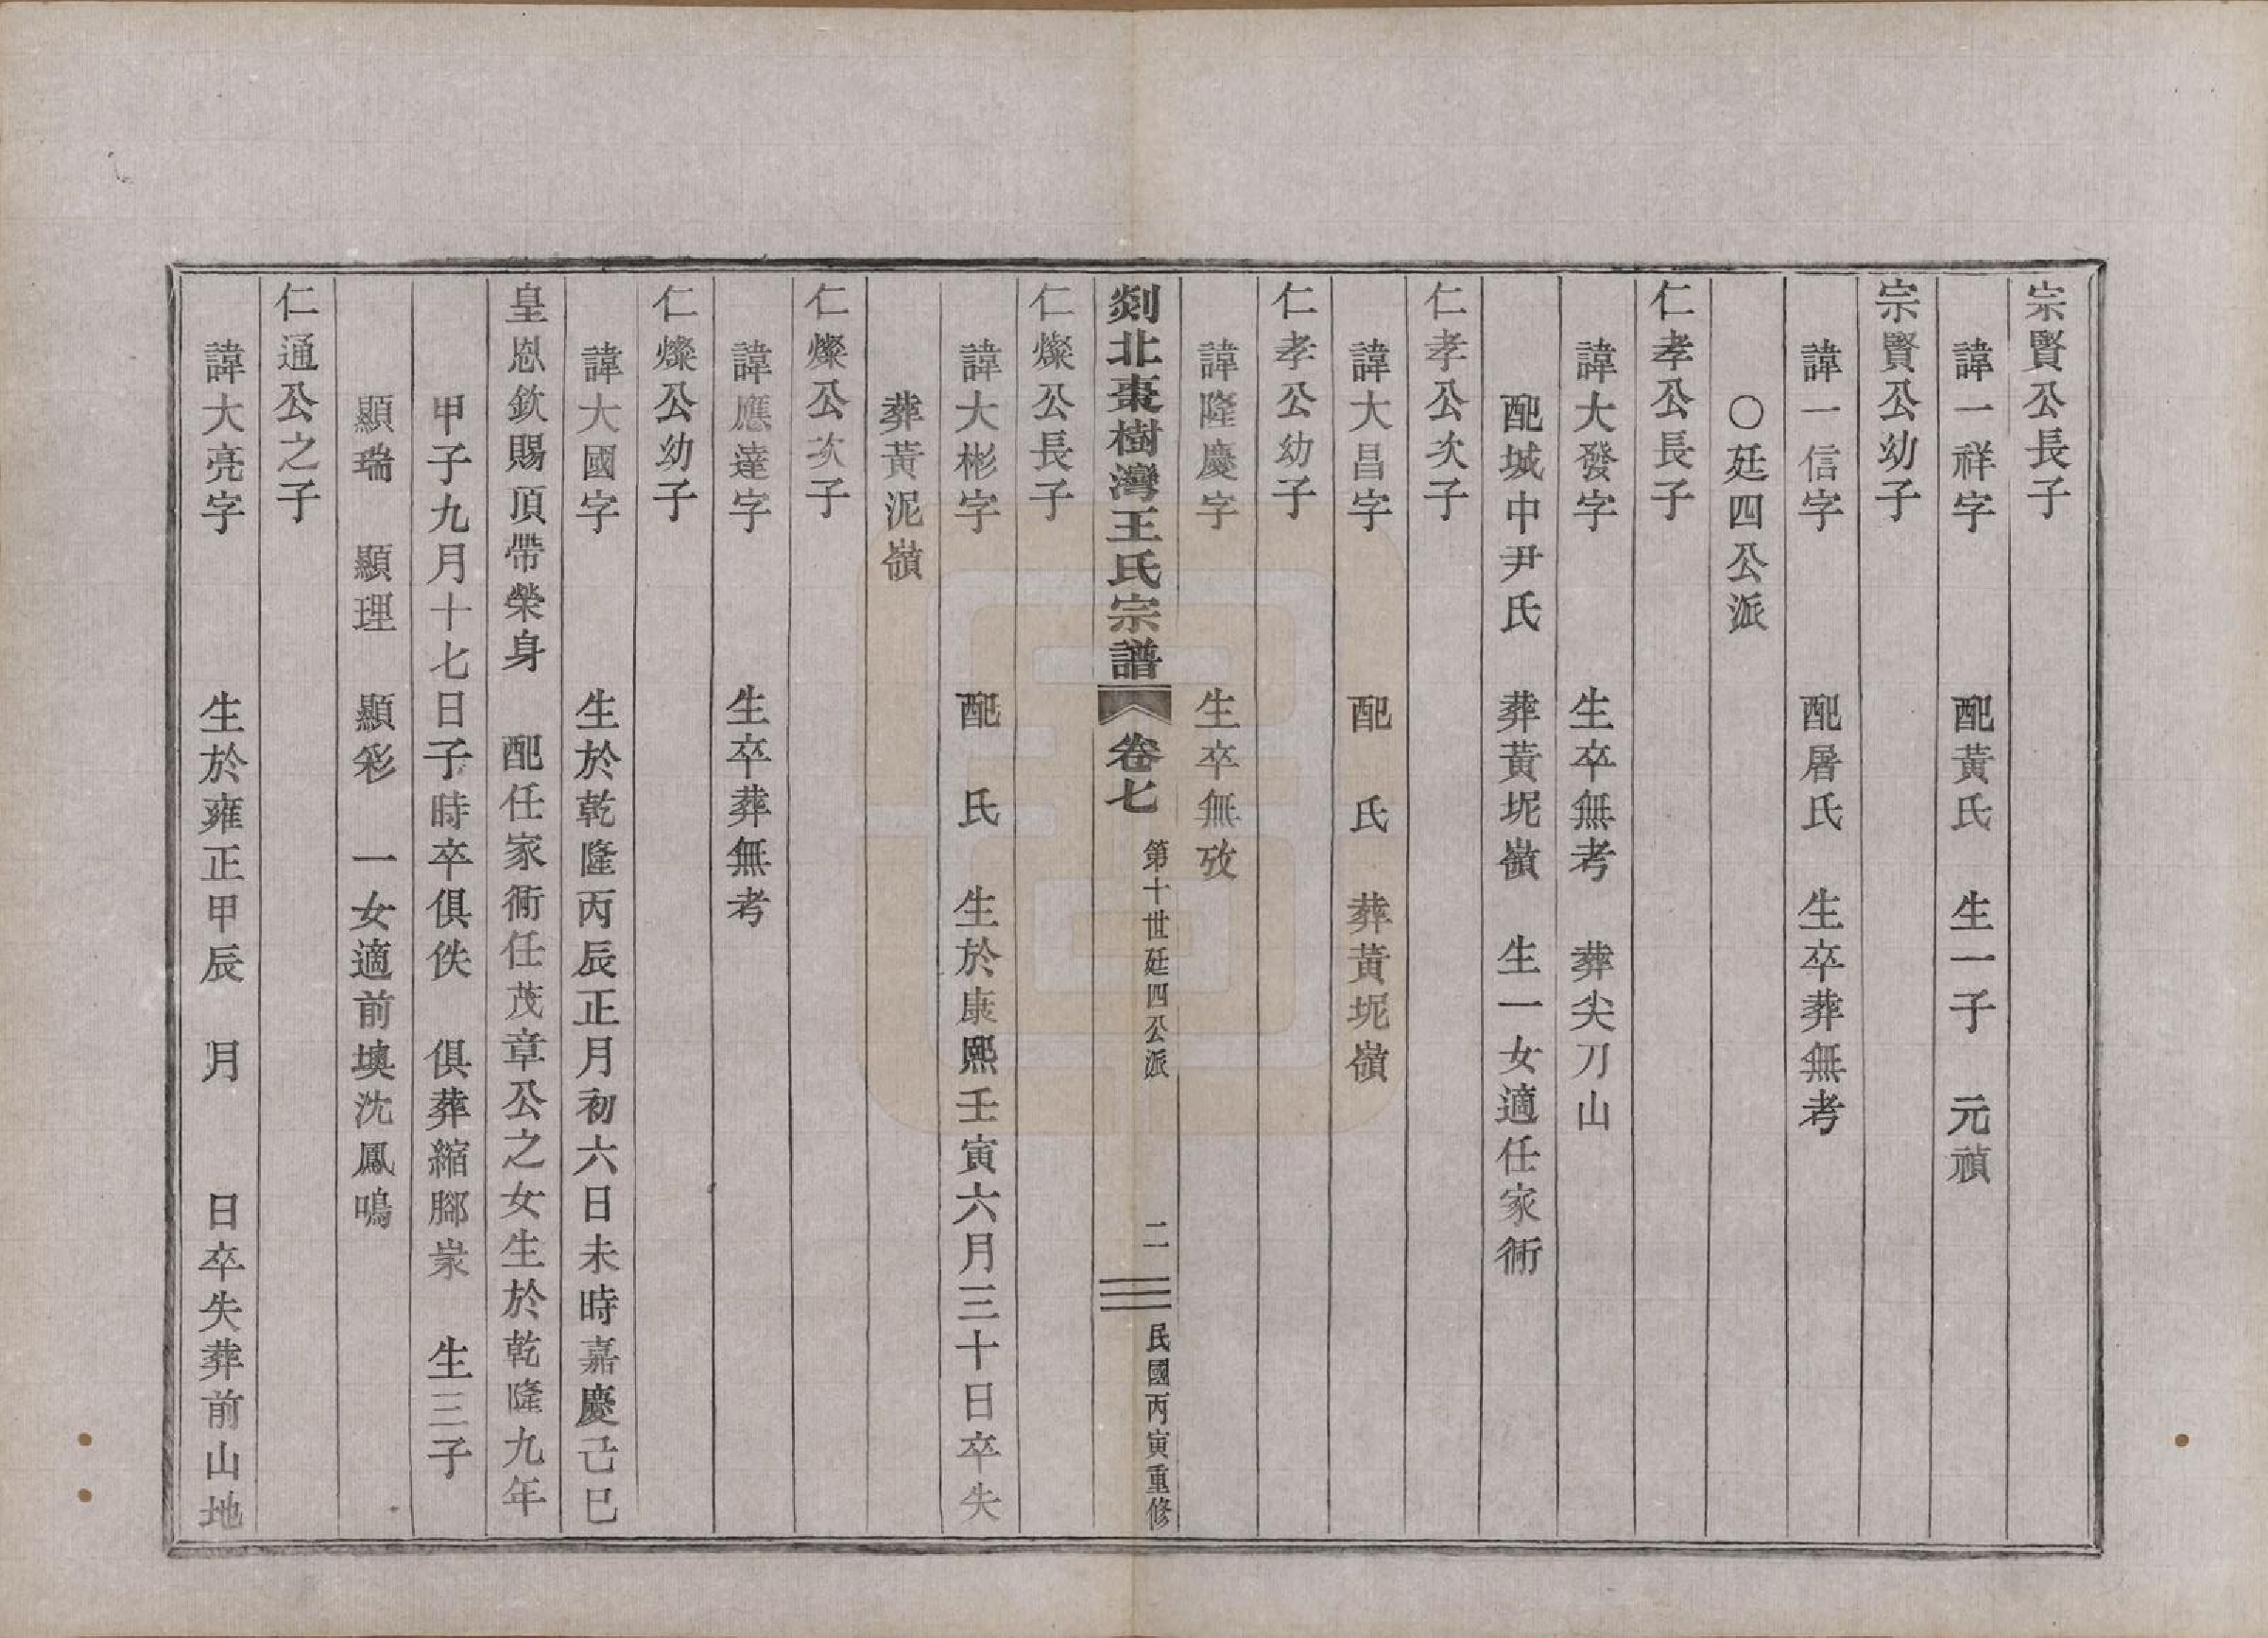 宗賢公長子
諱一祥字　配黃氏　生一子　元禎
宗賢公幼子
諱一信字　配屠氏　生卒葬無考
○廷四公派
仁孝公長子
諱大發字　生卒無考　葬尖刀山
配城中尹氏　葬黃坭嶺　生一女適任家衕
仁孝公次子
諱大昌字　配　氏　葬黃坭嶺
仁孝公幼子
諱隆慶字　生卒無攷
剡北棗樹灣王氏宗譜　卷七　第十世廷四公派　二　民國丙寅重修
仁燦公長子
諱大彬字　配　氏　生於康熙壬寅六月三十日卒失
葬黃泥嶺
仁燦公次子
諱應達字　生卒葬無考
仁燦公幼子
諱大國字　生於乾隆丙辰正月初六日未時嘉慶己巳
皇恩欽賜頂帶榮身　配任家衕任茂章公之女生於乾隆九年
甲子九月十七日子時卒俱佚　俱葬縮腳㟁　生三子
顯瑞　顯理　顯彩　一女適前墺沈鳳鳴
仁通公之子
諱大亮字　生於雍正甲辰　月　日卒失葬前山地